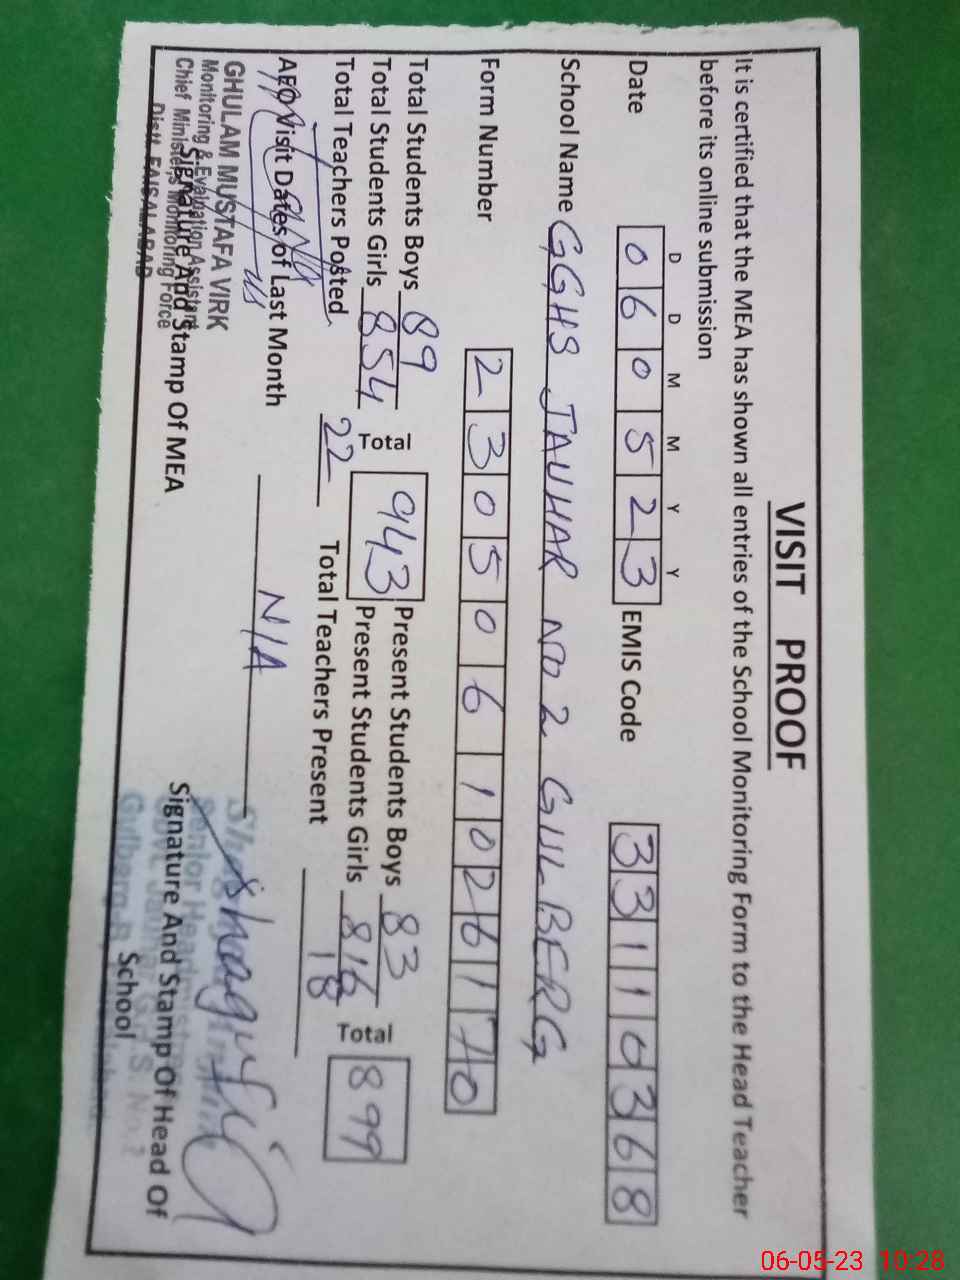 VISIT PROOF
It is certified that the MEA has shown all entries of the School Monitoring Form to the Head Teacher
before its online submission
D D M M Y Y
Date 060523 EMIS Code 33110368
School Name GGHS JAUHAR NO 2 GULBERG
Form Number 2305061026170
Total Students Boys 89 Present Students Boys 83
Total 943 Total 899
Total Students Girls 854 Present Students Girls 816
Total Teachers Posted 22 Total Teachers Present 18
AEO Visit Dates of Last Month N/A
GHULAM MUSTAFA VIRK
Monitoring & Evaluation Assistant
Chief Minister,s Monitoring Force
Distt. FAISALABAD
Signature And Stamp Of MEA
Signature And Stamp Of Head Of
School
06-05-23 10:28